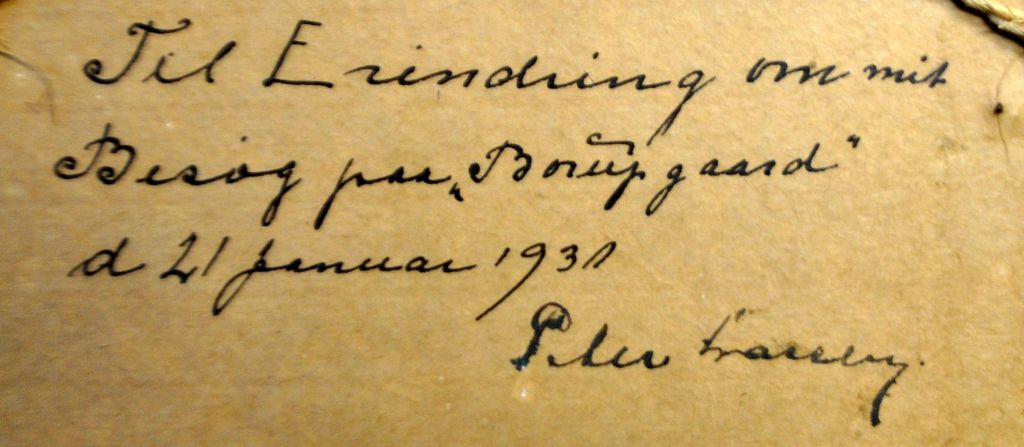 Til Erindring om mit
Besøg paa „Borupgaard"
d 21 Januar 1931
Peter